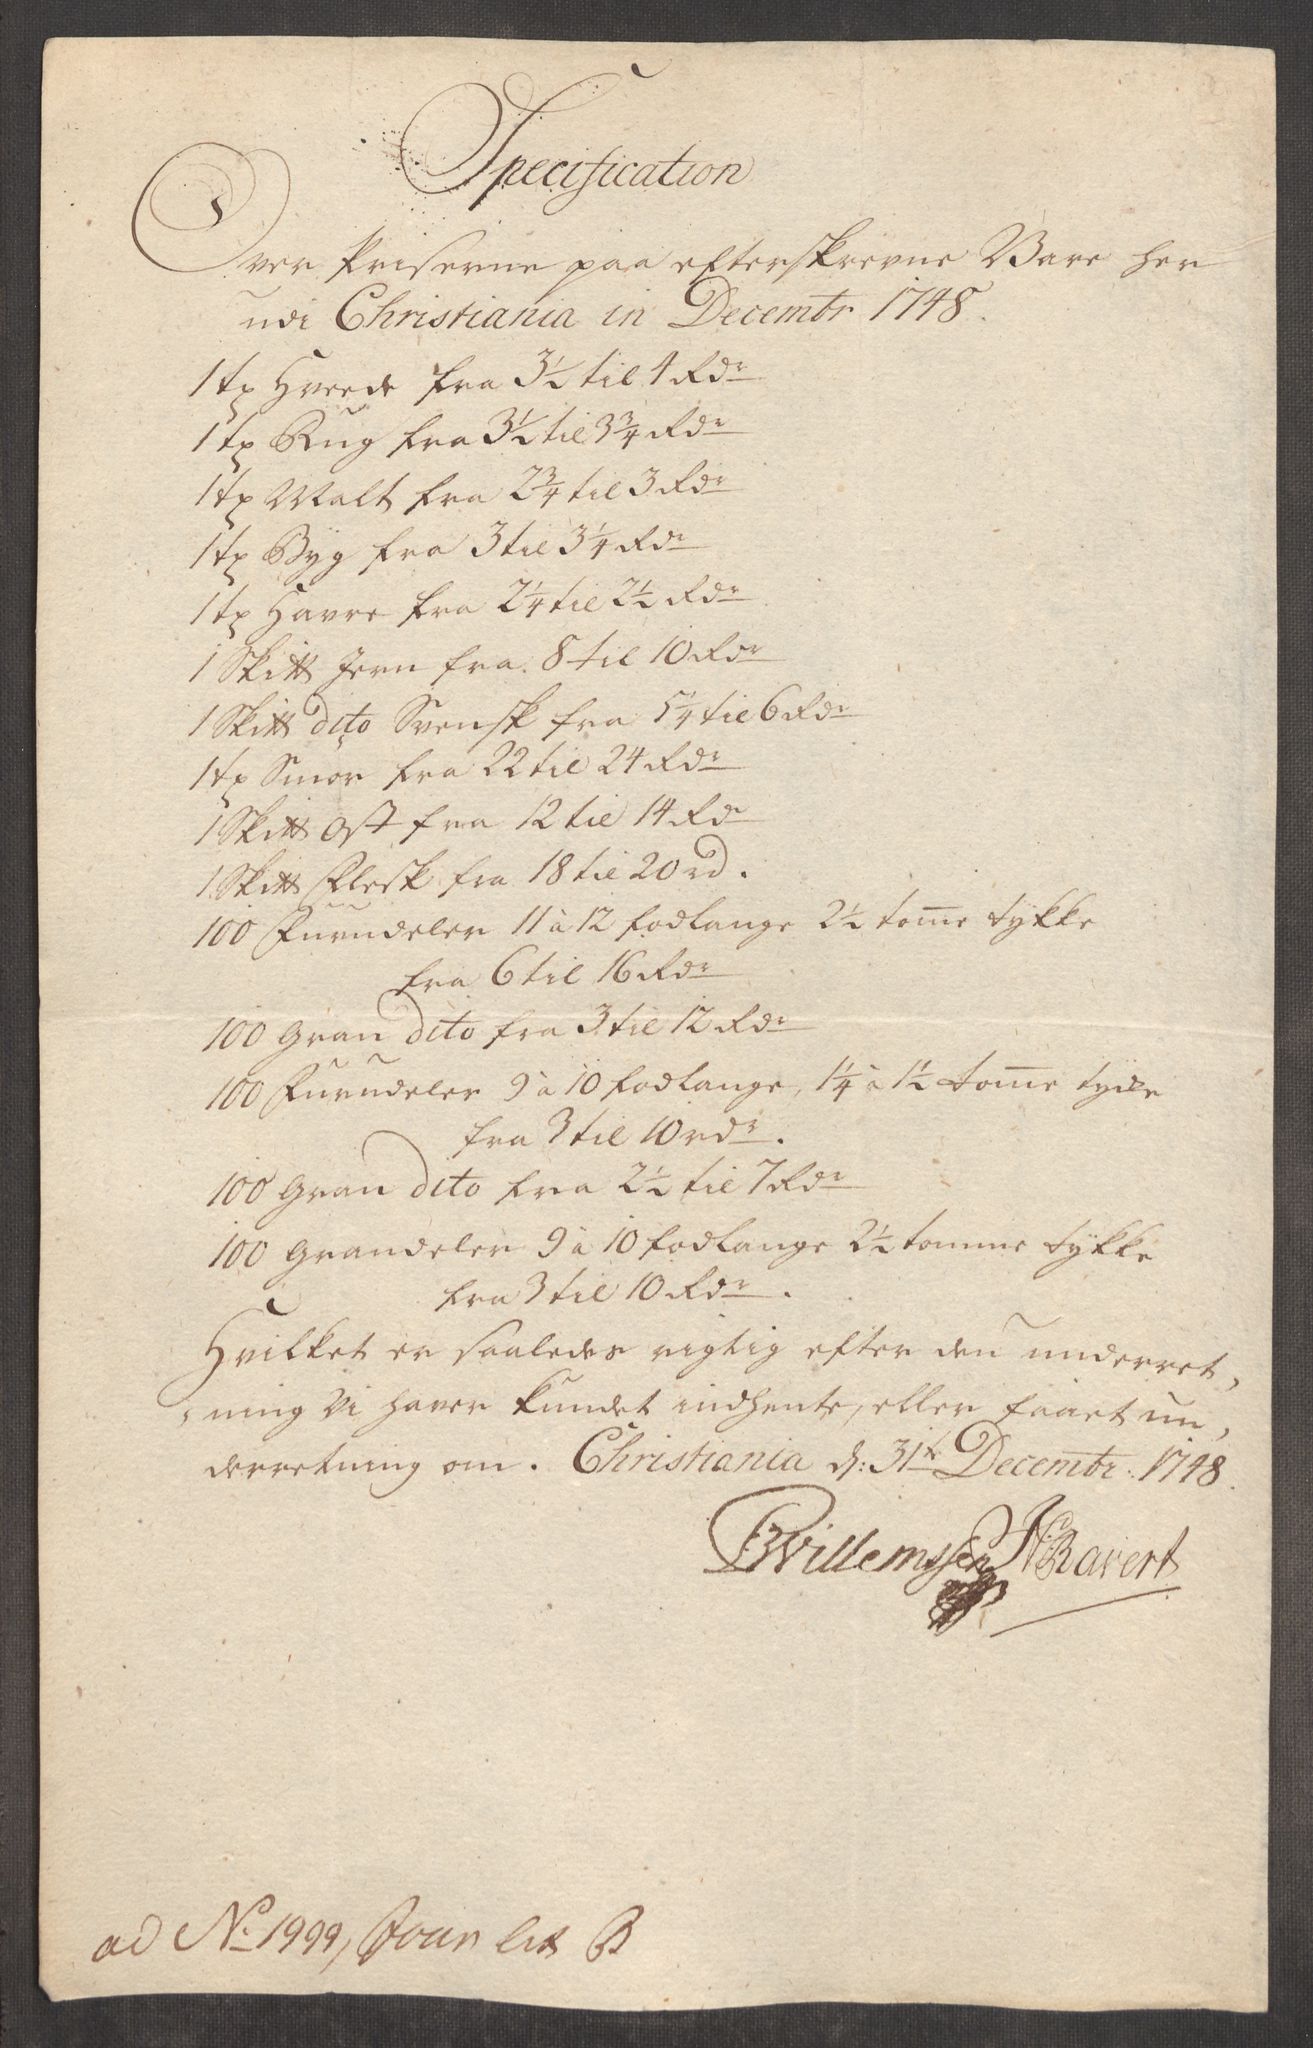 Specification
Over Priserne paa efterskrevne Vare her
udi Christiania in Decembr 1748.
1 tp Hvede fra 3½ til 4 Rdr
1 tp Rug fra 3½ til 3¾ Rdr
1 tp Malt fra 2¾ til 3 Rdr
1 tp Byg fra 3 til 3¼ Rdr
1 tp Havre fra 2¼ til 2½ Rdr
1 Skitt Jern fra 8 til 10 Rdr
1 Skitt dito Svensk fra 5¼ til 6 Rdr
1 tp Smør fra 22 til 24 Rdr
1 Skitt Ost fra 12 til 14 Rdr
1 Skitt Flesk fra 18 til 20 rd.
100 Furudeler 11 à 12 fodlange 2½ tom̅e tykke
fra 6 til 16 Rdr
100 Gran dito fra 3 til 12 Rdr
100 Furudeler 9 à 10 fodlange, 1¼ à 1½ tom̅e tycke
fra 3 til 10 rdr.
100 Gran dito fra 2½ til 7 Rdr
100 Grandeler 9 à 10 fodlange 2½ tomme tykke
fra 3 til 10 Rdr.
Hvilket er saaledes rigtig efter den underret,
,ning vi haver kundet indhente, eller faaet un,
derretning om. Christiania d: 31te Decembr. 1748.
Willemssen N: Ravert
ad No 1999, Jour lit B